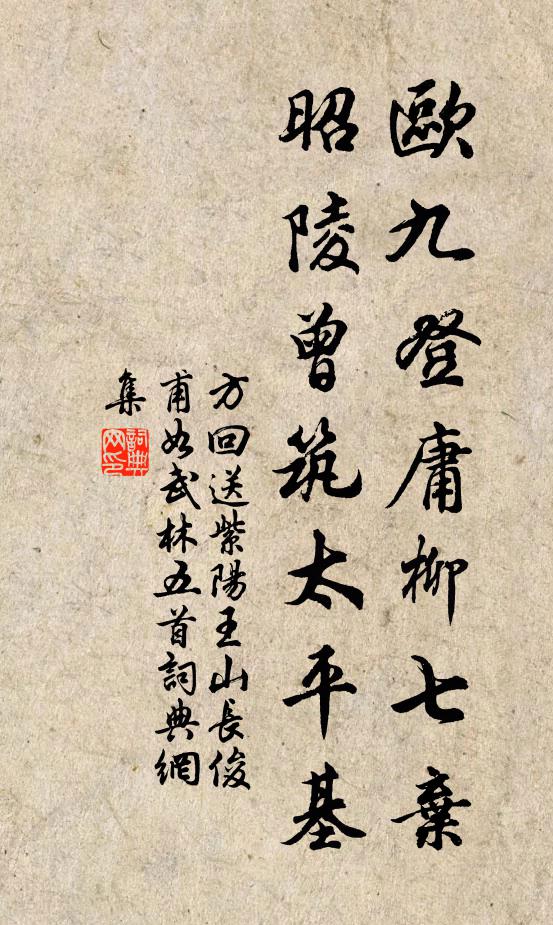 歐九登庸柳七棄
昭陵曾筑太平基
方回送紫陽王山長俊
甫如武林五首詞典網
集
詞典
網印